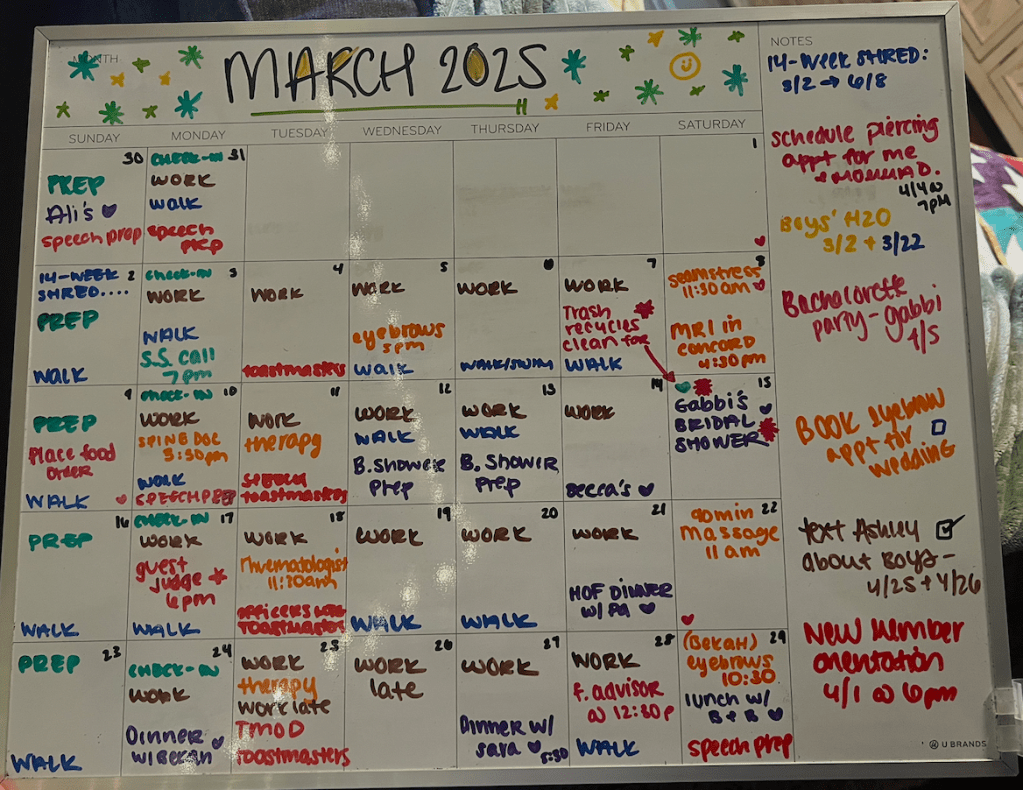 MONTH
MARCH 2025
SUNDAY MONDAY TUESDAY WEDNESDAY THURSDAY FRIDAY SATURDAY
30
PREP
Ali's
speech prep
CHECK-IN 31
WORK
WALK
speech
prep
1
14-WEEK 2
SHRED....
PREP
WALK
CHECK-IN 3
WORK
WALK
S.S. call
7pm
4
WORK
toastmasters
5
WORK
eyebrows
5pm
WALK
6
WORK
WALK/SWIM
7
WORK
Trash
recycles
clean for
WALK
8
seamstress
11:30am
MRI in
concord
4:30pm
9
PREP
Place food
order
WALK
CHECK-IN 10
WORK
SPINE DOC
3:30pm
WALK
SPEECH PREP
11
WORK
therapy
SPEECH
toastmasters
12
WORK
WALK
B. SHOWER
Prep
13
WORK
WALK
B. SHOWER
Prep
14
WORK
Becca's
15
Gabbi's
BRIDAL
SHOWER
16
PREP
WALK
CHECK-IN 17
WORK
guest
judge
6pm
WALK
18
WORK
11:20am
OFFICERS
TOASTMASTERS
19
WORK
WALK
20
WORK
WALK
21
WORK
HOF DINNER
W/ PA
90min 22
massage
11 am
PREP 23
WALK
24
CHECK-IN
WORK
DINNER
W/BEKAH
25
WORK
therapy
WORK late
TMOD
toastmasters
26
WORK
late
27
WORK
DINNER W/
sara 5:30
28
WORK
f. advisor
@ 12:30p
WALK
(BEKAH) 29
eyebrows
10:30
lunch w/
B + B
speech prep
NOTES
14-Week SHRED:
3/2 → 6/8
schedule piercing
appt for me
+ MOMMA D.
4/4 @
7PM
Boys' H2O
3/2 + 3/22
Bachelorette
party - gabbi
4/5
BOOK eyebrow
appt for
wedding
text Ashley
about BOYS -
4/25 + 4/26
New member
orientation
4/1 @ 6pm
U BRANDS